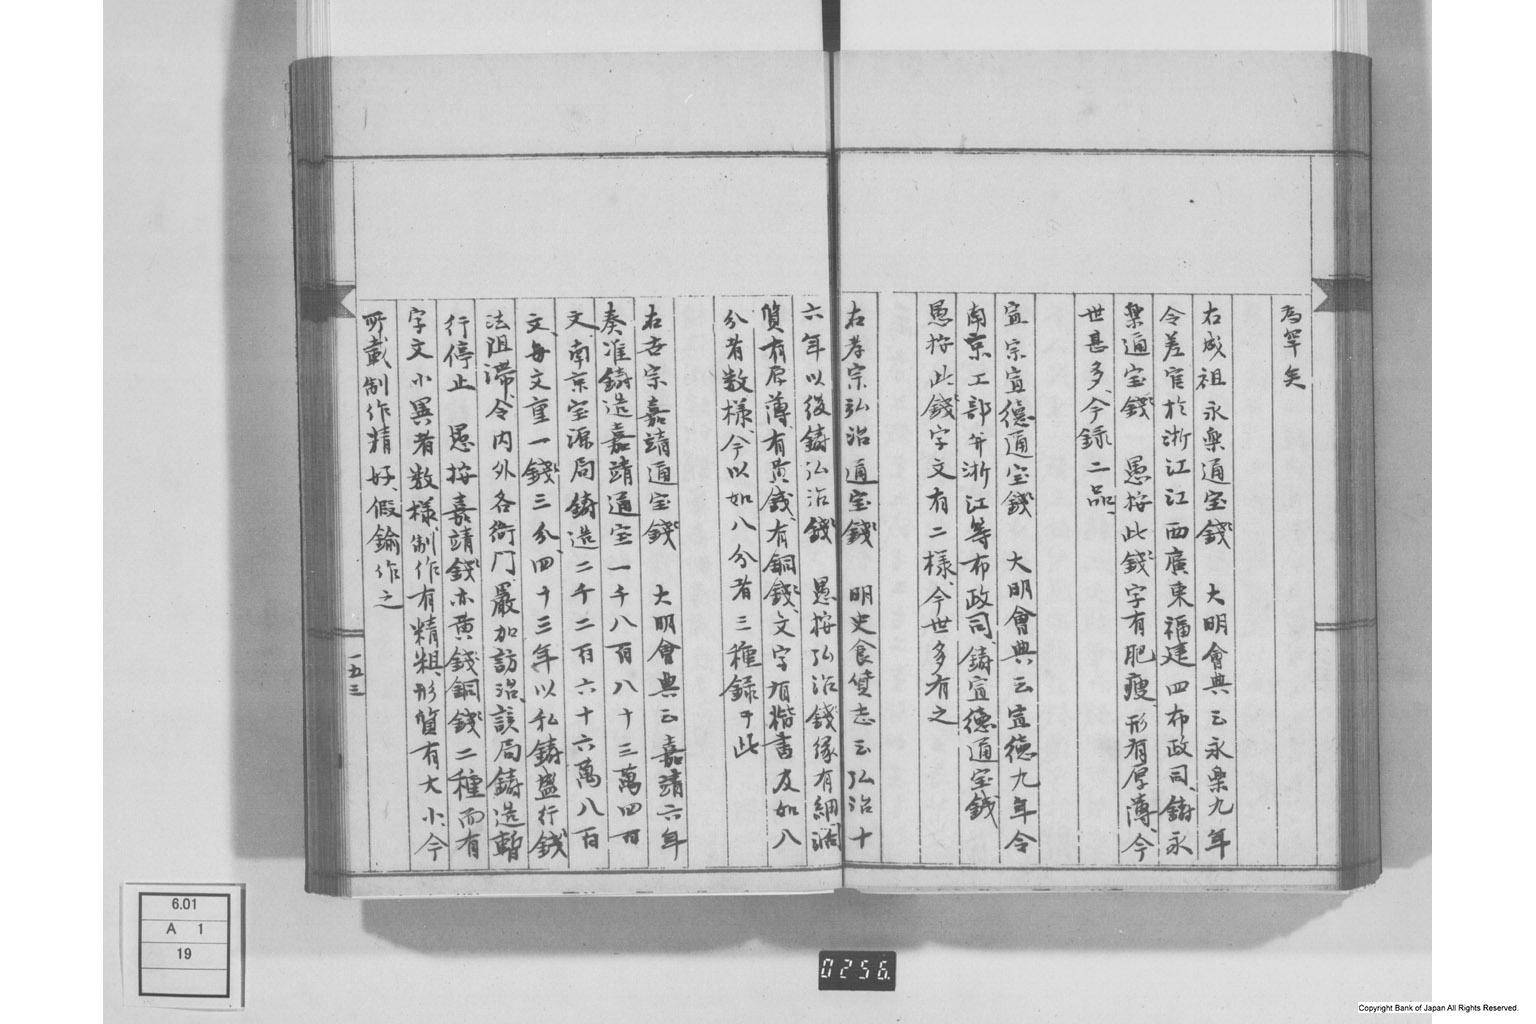 為罕矣
右成祖永樂通宝錢　大明會典云永樂九年
令差官於浙江江西廣東福建四布政司、鋳永
樂通宝錢　愚按此錢字有肥瘦、形有厚薄、今
世甚多、今録二品、
宣宗宣德通宝錢　大明會典云宣德九年令
南京工部并浙江等布政司、鋳宣德通宝錢
愚按此錢字文有二様、今世多有之
右孝宗弘治通宝錢　明史食貨志云弘治十
六年以後鋳弘治錢　愚按弘治錢縁有細濶
質有厚薄、有黄錢、有銅錢、文字有楷書及如八
分者数様、今以如八分者三種録于此
右世宗嘉靖通宝錢　大明會典云嘉靖六年
奏准鋳造嘉靖通宝一千八百八十三萬四百
文、南京宝源局鋳造二千二百六十六萬八百
文、每文重一錢三分、四十三年以私鋳盛行錢
法阻滯、令内外各衙门嚴加訪治、該局鋳造暫
行停止　愚按嘉靖錢亦黄錢銅錢二種而有
字文小異者数様、制作有精粗、形質有大小、今
所載制作精好、假鍮作之
一五三
6.01
A 1
19
0256
Copyright Bank of Japan All Rights Reserved.